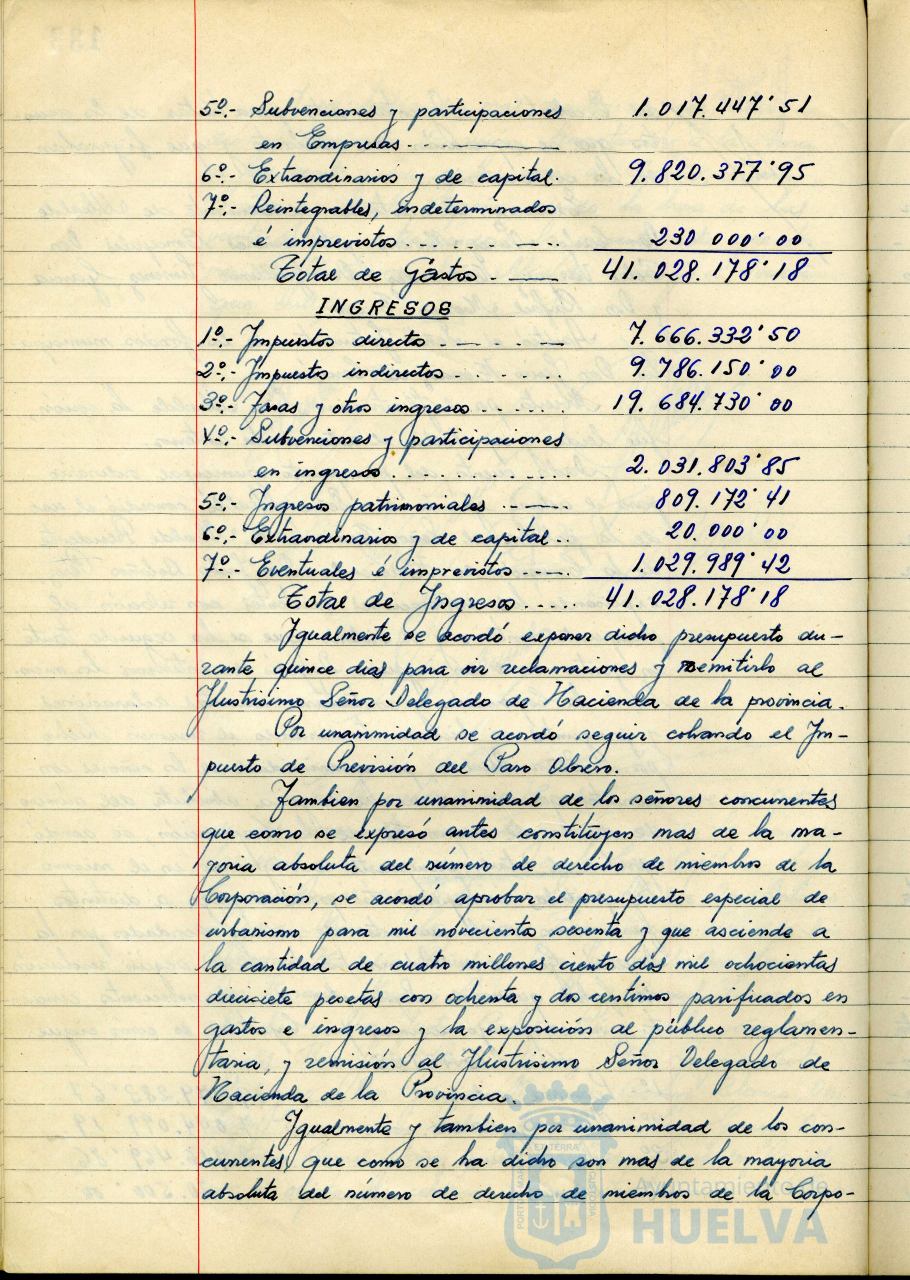 5º.- Subvenciones y participaciones 1.017.447'51
en Empresas.
6º.- Extraordinarios y de capital. 9.820.377'95
7º.- Reintegrables, indeterminados
é imprevistos...... 230 000'00
Total de Gastos.- 41.028.178'18
INGRESOS
1º.- Impuestos directo.- 7.666.332'50
2º.- Impuesto indirectos...... 9.786.150'00
3º.- Tasas y otros ingresos...... 19.684.730'00
4º.- Subvenciones y participaciones
en ingresos............ 2.031.803'85
5º.- Ingresos patrimoniales 809.172'41
6º.- Extraordinarios y de capital.. 20.000'00
7º.- Eventuales é imprevistos 1.029.989'42
Total de Ingresos..... 41.028.178'18
Igualmente se acordó exponer dicho presupuesto du-
rante quince dias para oir reclamaciones y remitirlo al
Ilustrisimo Señor Delegado de Hacienda de la provincia.
Por unanimidad se acordó seguir cobrando el Im-
puesto de Previsión del Paro Obrero.
Tambien por unanimidad de los señores concurrentes
que como se expresó antes constituyen mas de la ma-
yoria absoluta del número de derecho de miembros de la
Corporación, se acordó aprobar el presupuesto especial de
urbanismo para mil novecientos sesenta y que asciende a
la cantidad de cuatro millones ciento dos mil ochocientas
diecisiete pesetas con ochenta y dos centimos parificados en
gastos e ingresos y la exposición al público reglamen-
taria, y remisión al Ilustrisimo Señor Delegado de
Hacienda de la Provincia.
Igualmente y tambien por unanimidad de los con-
currentes, que como se ha dicho son mas de la mayoria
absoluta del número de derecho de miembros de la Corpo-
Ayuntamiento de
HUELVA